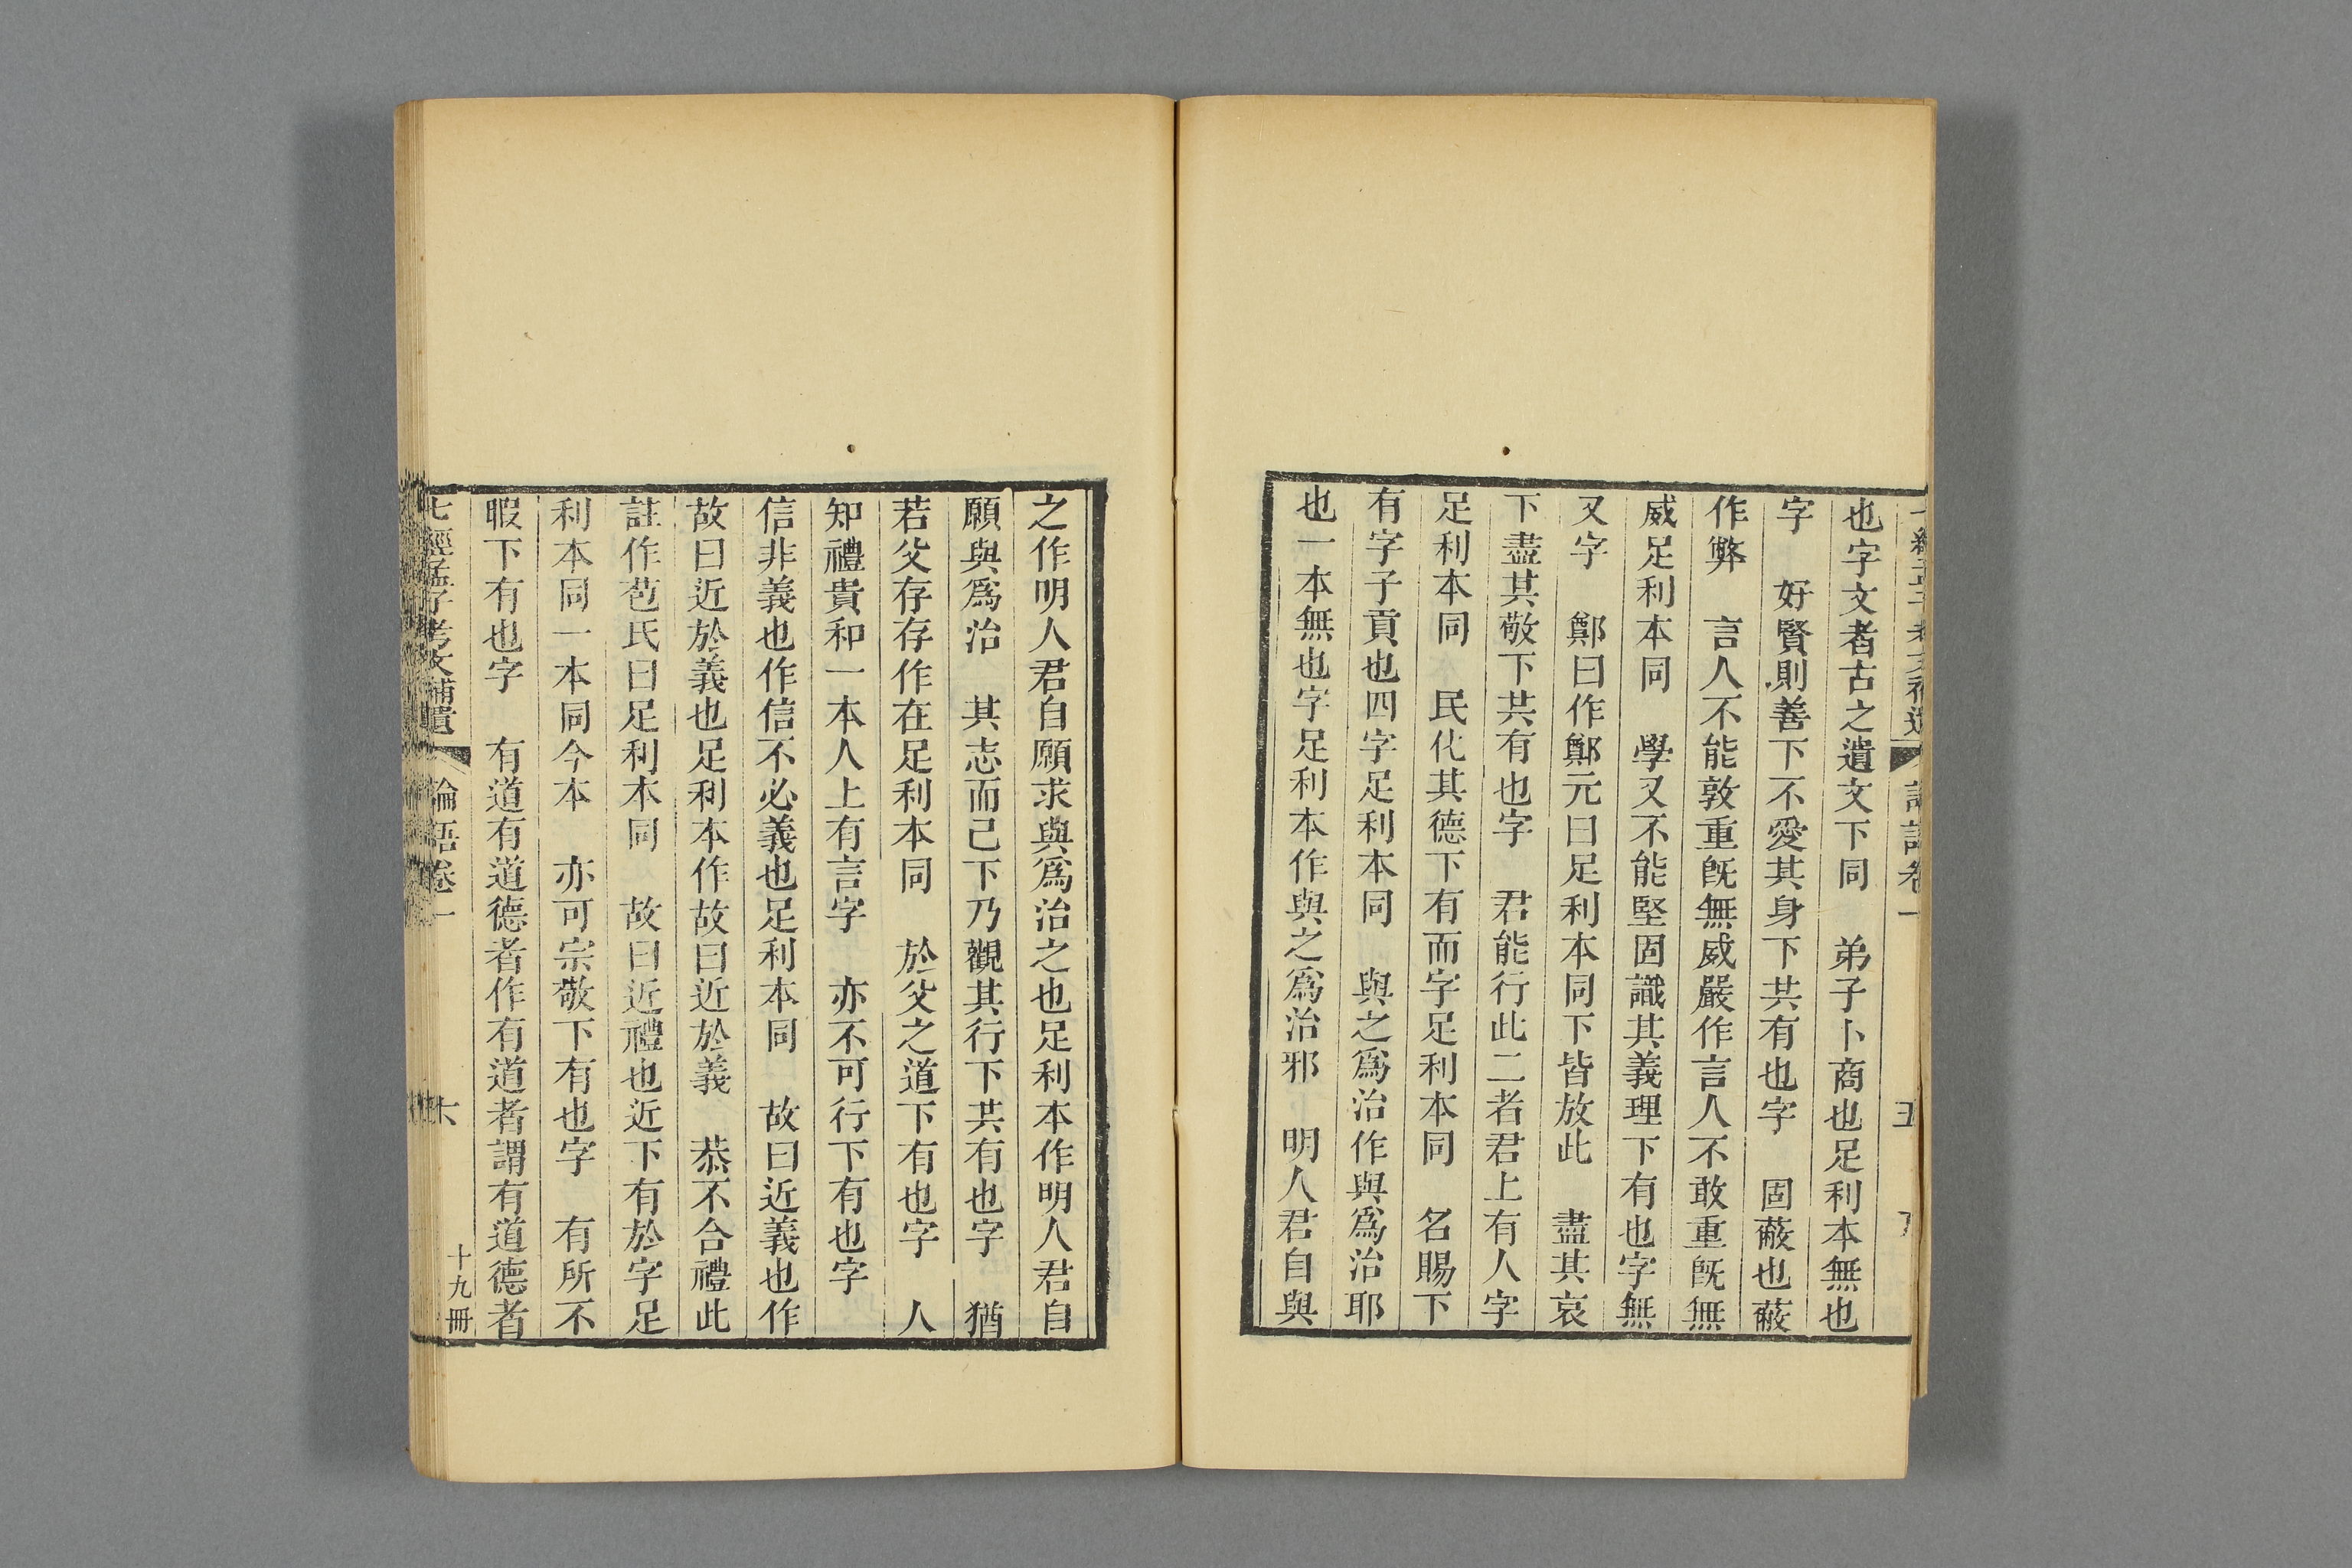 也字文者古之遺文下同　弟子卜商也足利本無也
字　好賢則善下不愛其身下共有也字　固蔽也蔽
作弊　言人不能敦重旣無威嚴作言人不敢重旣無
威足利本同　學又不能堅固識其義理下有也字無
又字　鄭曰作鄭元曰足利本同下皆放此　盡其哀
下盡其敬下共有也字　君能行此二者君上有人字
足利本同　民化其德下有而字足利本同　名賜下
有字子貢也四字足利本同　與之爲治作與爲治耶
也一本無也字足利本作與之爲治邪　明人君自與
之作明人君自願求與爲治之也足利本作明人君自
願與爲治　其志而己下乃觀其行下共有也字　猶
若父存存作在足利本同　於父之道下有也字　人
知禮貴和一本人上有言字　亦不可行下有也字
信非義也作信不必義也足利本同　故曰近義也作
故曰近於義也足利本作故曰近於義　恭不合禮此
註作苞氏曰足利本同　故曰近禮也近下有於字足
利本同一本同今本　亦可宗敬下有也字　有所不
暇下有也字　有道有道德者作有道者謂有道德者
七經孟子考文補遺　論語卷一　六　十九冊